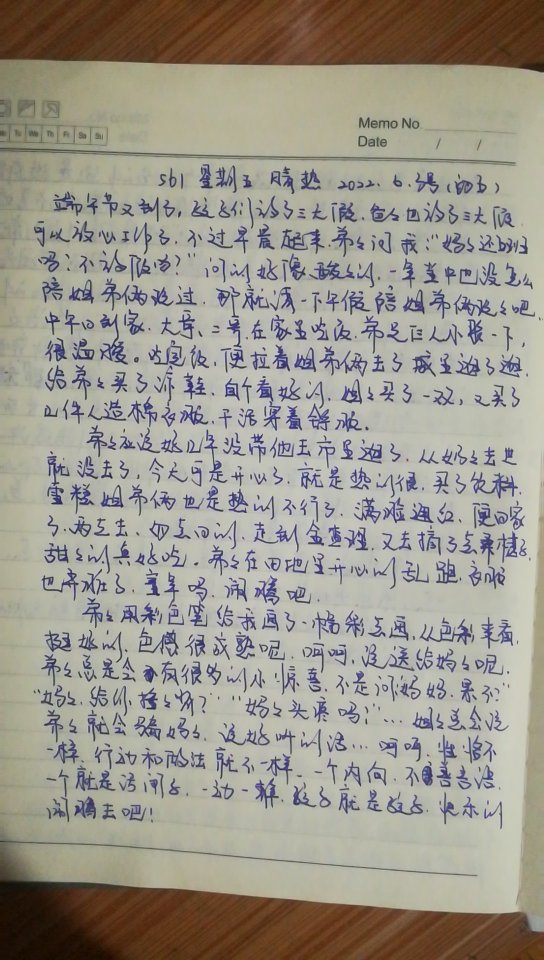 Memo No
Date / /
Mo Tu We Th Fr Sa Su
561 星期五 晴热 2022.6.3号
端午节又到了,孩子们放了三天假,爸々也放了三天假
可以放心工作了,不过早晨起来,弟々问我:“妈々还上班
吗?不放假吗?”问的好像 酸々的,一年当中也没怎么
陪姐弟俩玩过,那就请一下午假陪姐弟俩玩々吧
中午回到家,大哥、二哥,在家里吃饭,弟兄仨人小聚一下,
很温暖。吃完饭,便拉着姐弟俩去了城里逛了逛,
给弟々买了凉鞋,自个看好的,姐々买了一双,又买了
几件人造棉衣服,干活穿着舒服。
弟々应该好几年没带他去市里逛了,从妈々去世
就没去了,今天可是开心了,就是热的很,买了饮料,
雪糕 姐弟俩也是热的不行了,满脸通红,便回家
了,两点去,四点回的,走到 又去摘了点桑椹子
甜々的真好吃。弟々在田地里开心的乱跑,衣服
也弄脏了,童年吗,闹腾吧
弟々用彩色笔给我画了一幅彩色画,从色彩来看,
挺好的,色感很成熟呢,呵呵,没送给妈々呢,
弟々总是会有很多的小惊喜,不是问“妈妈,累不?”
“妈々,给你 ?”“妈々头疼吗?”…姐々总会说
弟々就会骗妈々,说好听的话…呵呵,性格不
一样,行动和做法就不一样,一个内向,不善言语
一个就是活闹子,一动一静,孩子就是孩子,快乐的
闹腾去吧!